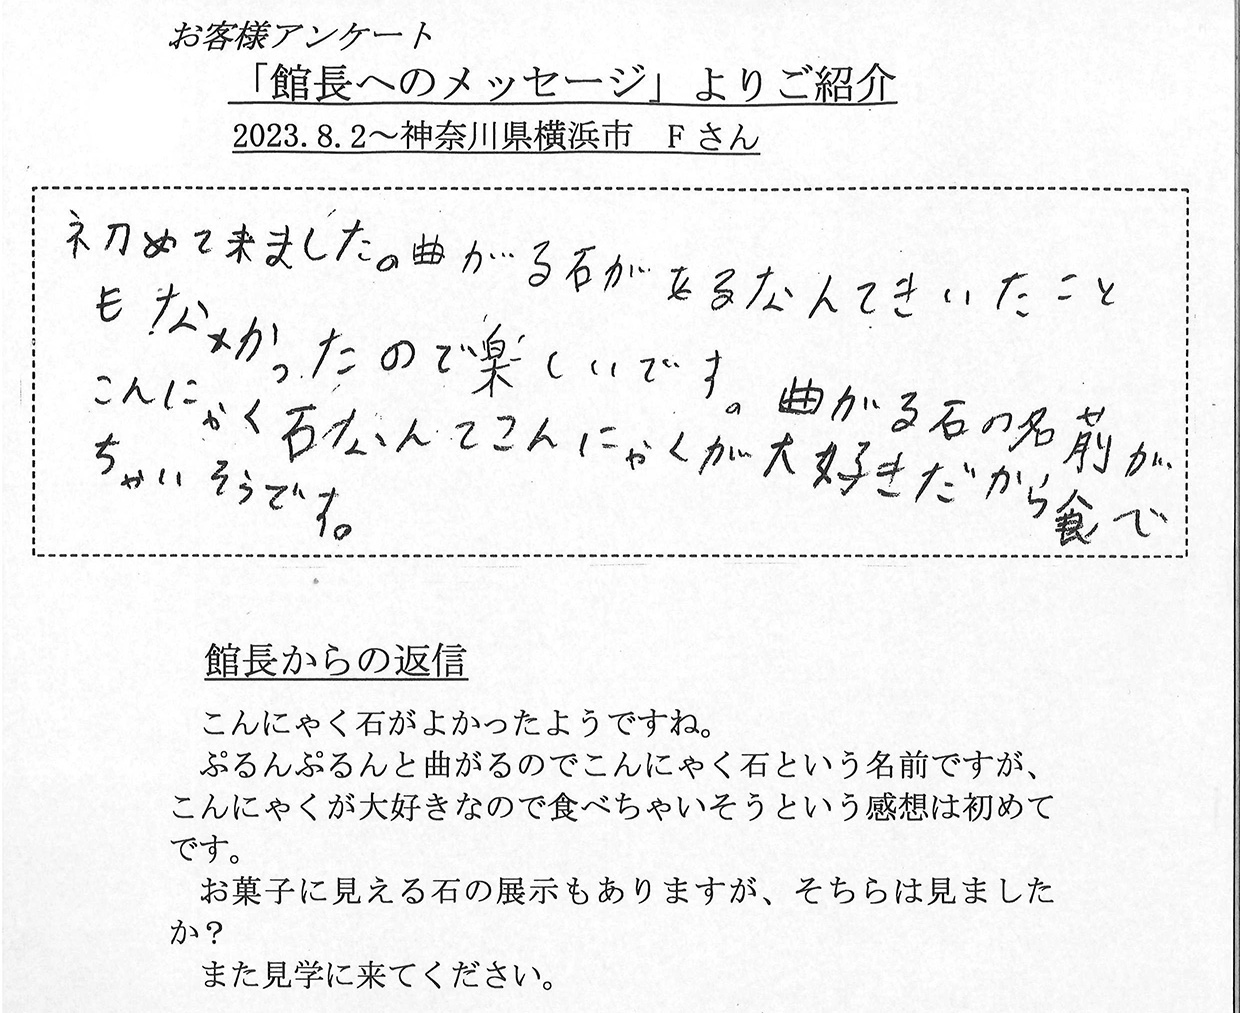 お客様アンケート
「館長へのメッセージ」よりご紹介
2023.8.2～神奈川県横浜市　Fさん
初めて来ました。曲がる石があるなんてきいたこと
もなかったので楽しいです。曲がる石の名前が
こんにゃく石なんてこんにゃくが大好きだから食で
ちゃいそうです。
館長からの返信
こんにゃく石がよかったようですね。
ぷるんぷるんと曲がるのでこんにゃく石という名前ですが、
こんにゃくが大好きなので食べちゃいそうという感想は初めて
です。
お菓子に見える石の展示もありますが、そちらは見ました
か？
また見学に来てください。